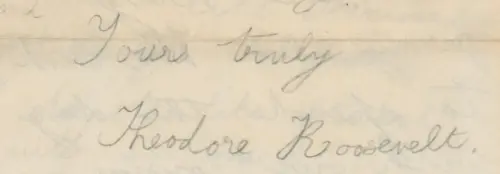 Yours truly
Theodore Roosevelt.